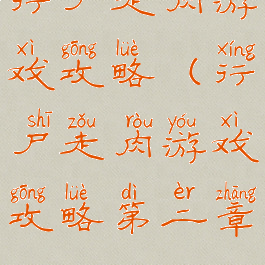 行尸走肉游
xì gōng lüè xíng
戏攻略（行
shī zǒu ròu yóu xì
尸走肉游戏
gōng lüè dì èr zhāng
攻略第二章